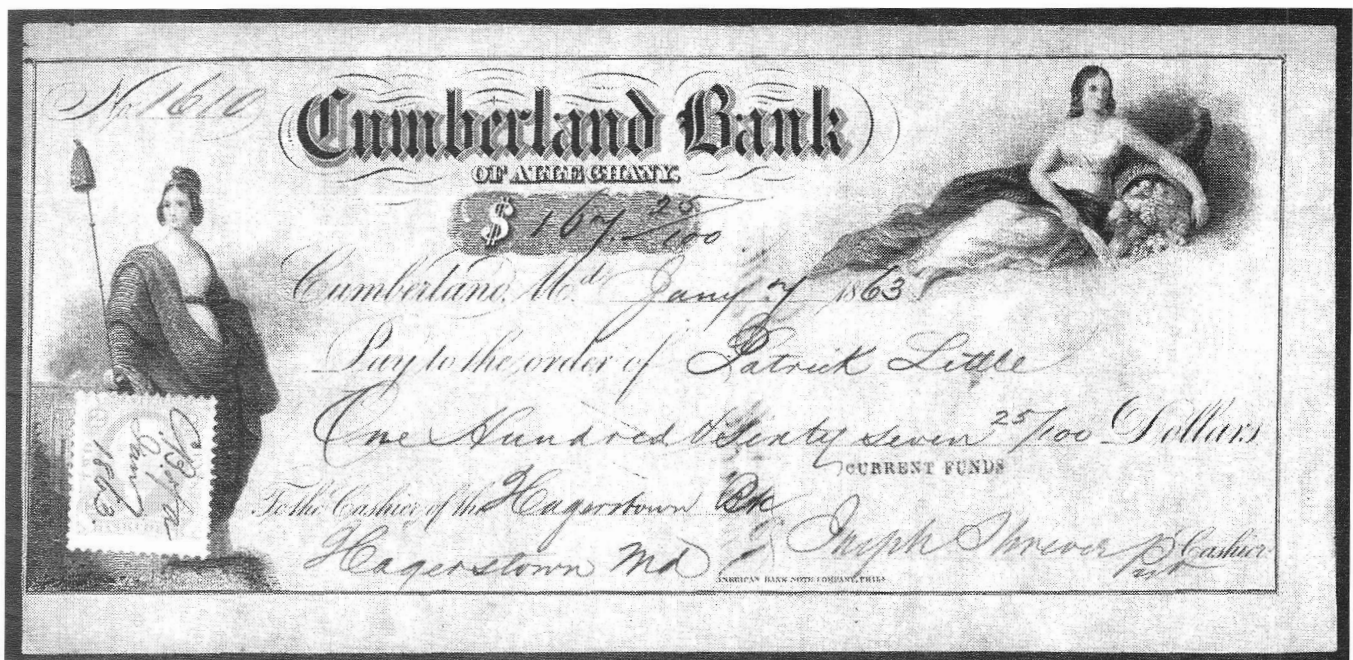 No. 1610
Cumberland Bank
OF ALLEGHANY.
$ 167. 25/100
Cumberland, Md. Jany 7 1863
Pay to the order of Patrick Little
One Hundred & Sixty seven 25/100 Dollars
CURRENT FUNDS
To the Cashier of the Hagerstown Bk
Hagerstown Md
Joseph Shriver Cashier
AMERICAN BANK NOTE COMPANY, PHILA
Jany 7
1863